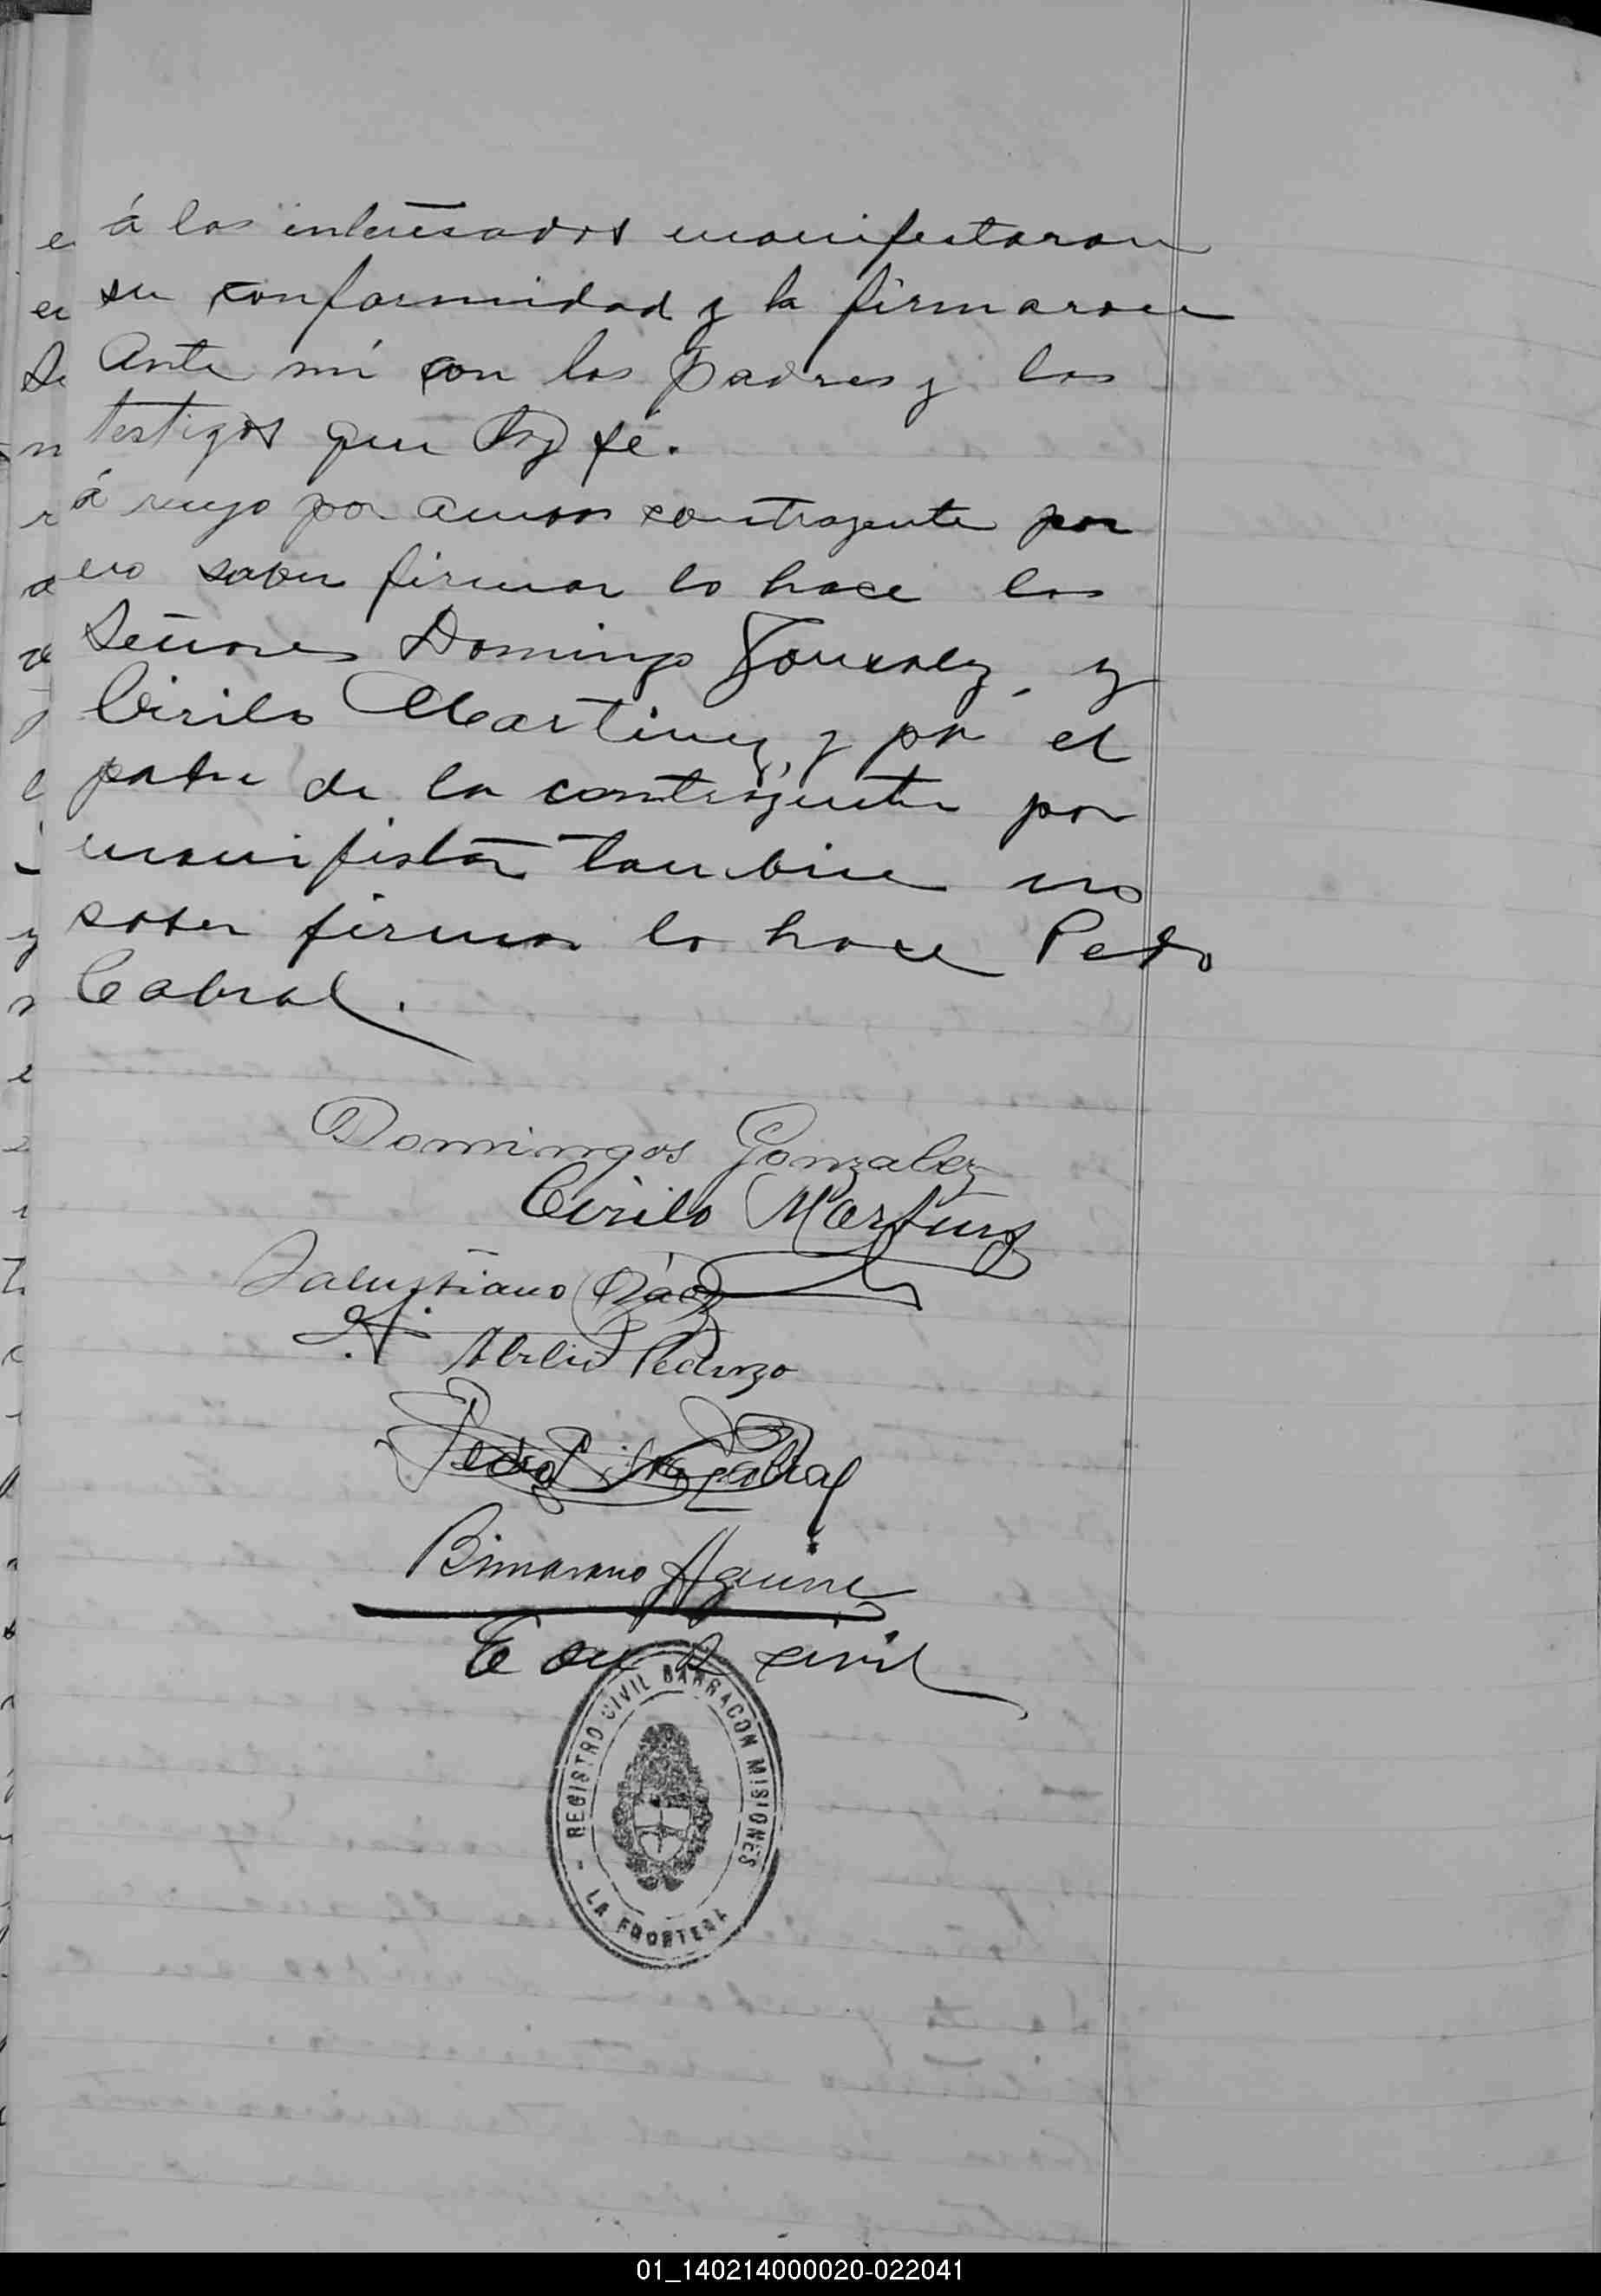 á los interesados manifestaron
su conformidad y la firmaron
Ante mí con los padres y los
testigos que doy fé.
á ruego por amvos contrayente por
no saver firmar lo hace los
Señores Domingo Gonzalez, y
Cirilo Martinez, y por el
padre de la contrayente por
manifestar tanbien no
saber firmar lo hace Pedro
Cabral.
Domingos Gonzalez
Cirilo Martinez
Salustiano
Abelin
Pedro Silva Cabral
Aguirre
E del R civil
REGISTRO CIVIL BARRACON MISIONES
LA FRONTERA
01_140214000020-022041